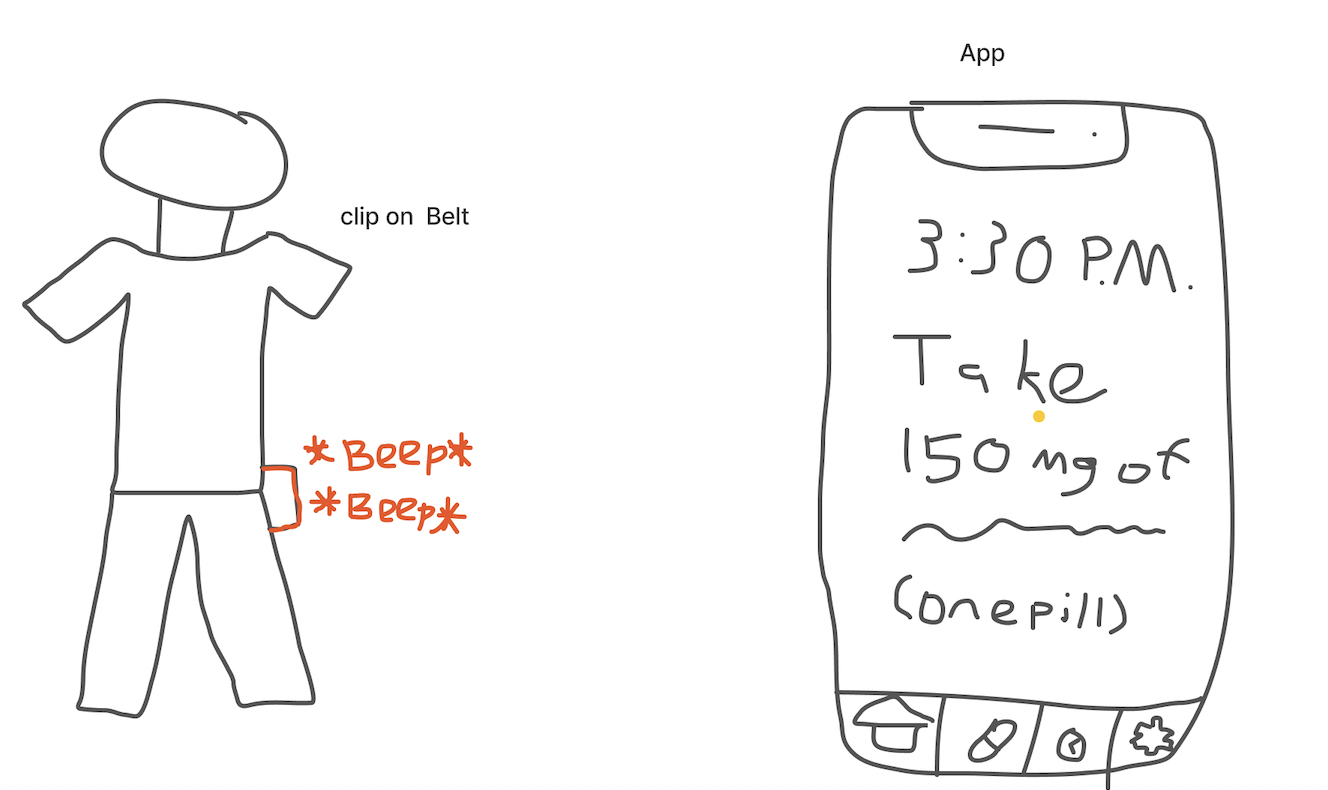 App
clip on Belt
*Beep*
*Beep*
3:30 P.M.
Take
150 mg of
(one pill)